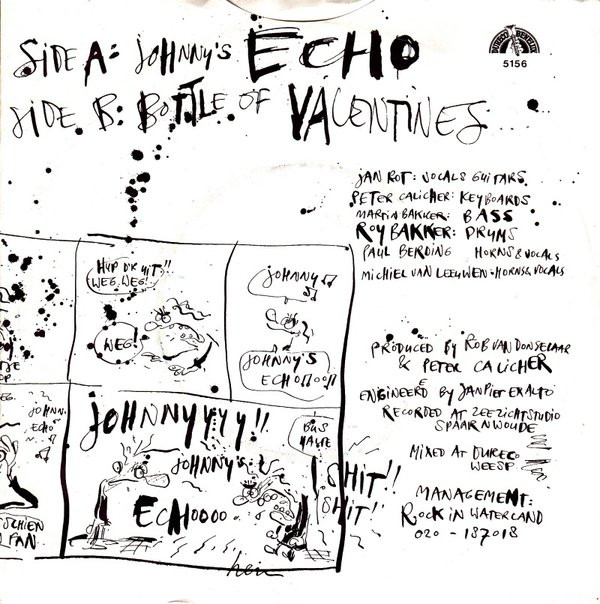 SiDE A: JOHNNY'S ECHO
SiDE B: BOTTLE OF VALENTINES
5156
JAN ROT: VOCALS GUITARS
PETER CALICHER: KEYBOARDS
MARTIN BAKKER: BASS
ROY BAKKER: DRUMS
PAUL BERDING HORNS & VOCALS
MICHIEL VAN LEEUWEN - HORNS & VOCALS
HUP D'R UIT!!
WEG, WEG!
WEG!
JOHNNY
JOHNNY'S
ECHOOOO!!
PRODUCED BY ROB VAN DONSELAAR
& PETER CALICHER
ENGINEERED BY JAN PIET EXALTO
RECORDED AT ZEEZICHTSTUDIO
SPAARNWOUDE
MIXED AT DURECO
WEESP
MANAGEMENT:
ROCK IN WATERLAND
020 - 187018
JOHNN.
ECHO
JOHNNYYYY!!
BUS
HALTE
JOHNNY'S
ECHOOOO
SHIT!!
SHIT!
SCHIEN
FAN
hein